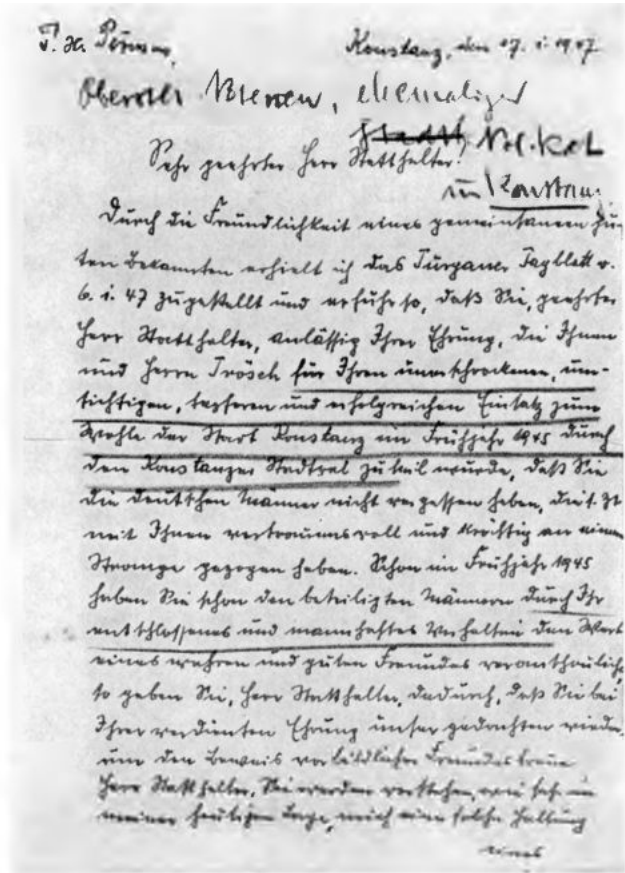 Konstanz, den 17. i. 1947
Oberstlt. ehemaliger
Stadtk Vol. Kot
Sehr geehrter Herr Statthalter!
in Konstanz
Durch die Freundlichkeit eines gemeinsamen gu-
ten Bekannten erhielt ich das Turgauer Tagblatt v.
6. i. 47 zugestellt und erfuhr so, daß Sie, geehrter
Herr Statthalter, anlässig Ihrer Ehrung, die Ihnen
und Herrn Trösch für Ihren unerschrockenen, um-
sichtigen, tapferen und erfolgreichen Einsatz zum
Wohle der Stadt Konstanz im Frühjahr 1945 durch
den Konstanzer Stadtrat zuteil wurde, daß Sie
die deutschen Männer nicht vergessen haben, die s. Zt
mit Ihnen vertrauensvoll und kräftig an einem
Strange gezogen haben. Schon im Frühjahr 1945
haben Sie schon den beteiligten Männern durch Ihr
entschlossenes und mannhaftes Verhalten den Wert
eines wahren und guten Freundes veranschaulicht,
so geben Sie, Herr Statthalter, dadurch, daß Sie bei
Ihrer verdienten Ehrung unser gedachten wieder-
um den Beweis vorbildlicher Freundestreue.
Herr Statthalter, Sie werden verstehen, wie sehr in
meiner heutigen Lage, mich eine solche Haltung
eines